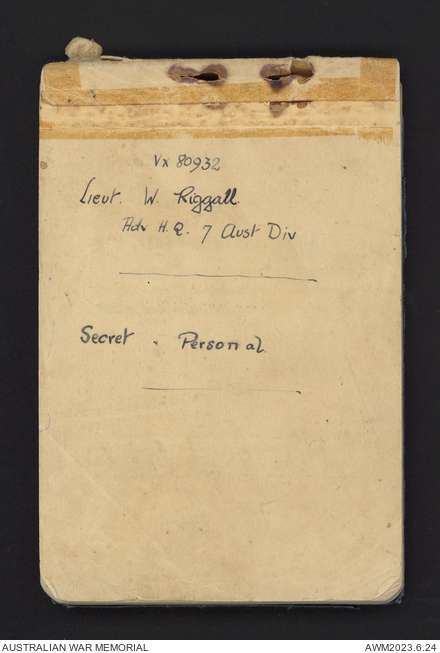 Vx 80932
Lieut. W. Riggall.
Adv H.Q. 7 Aust Div
Secret . Personal.
AUSTRALIAN WAR MEMORIAL
AWM2023.6.24